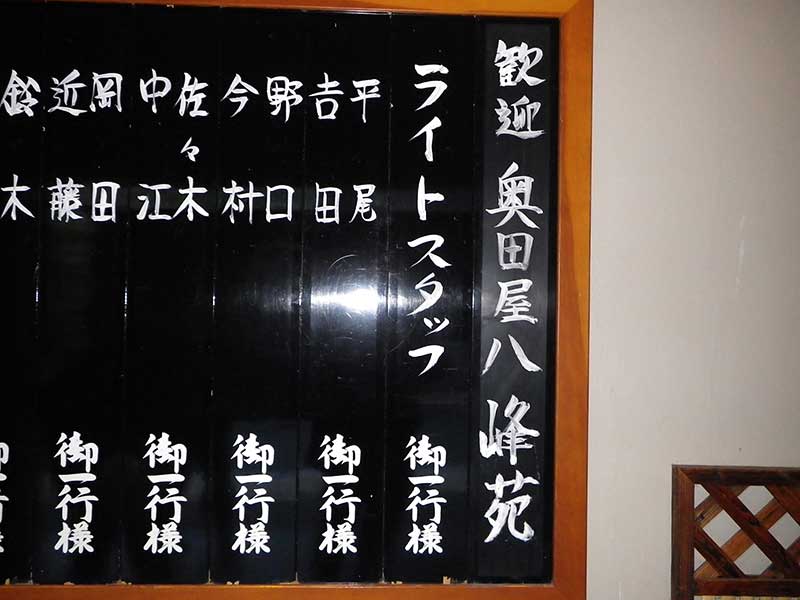 歓迎 奥田屋八峰苑
ライトスタッフ 御一行様
平尾
吉田
御一行様
野口
今村
御一行様
佐々木
中江
御一行様
岡田
近藤
御一行様
鈴木